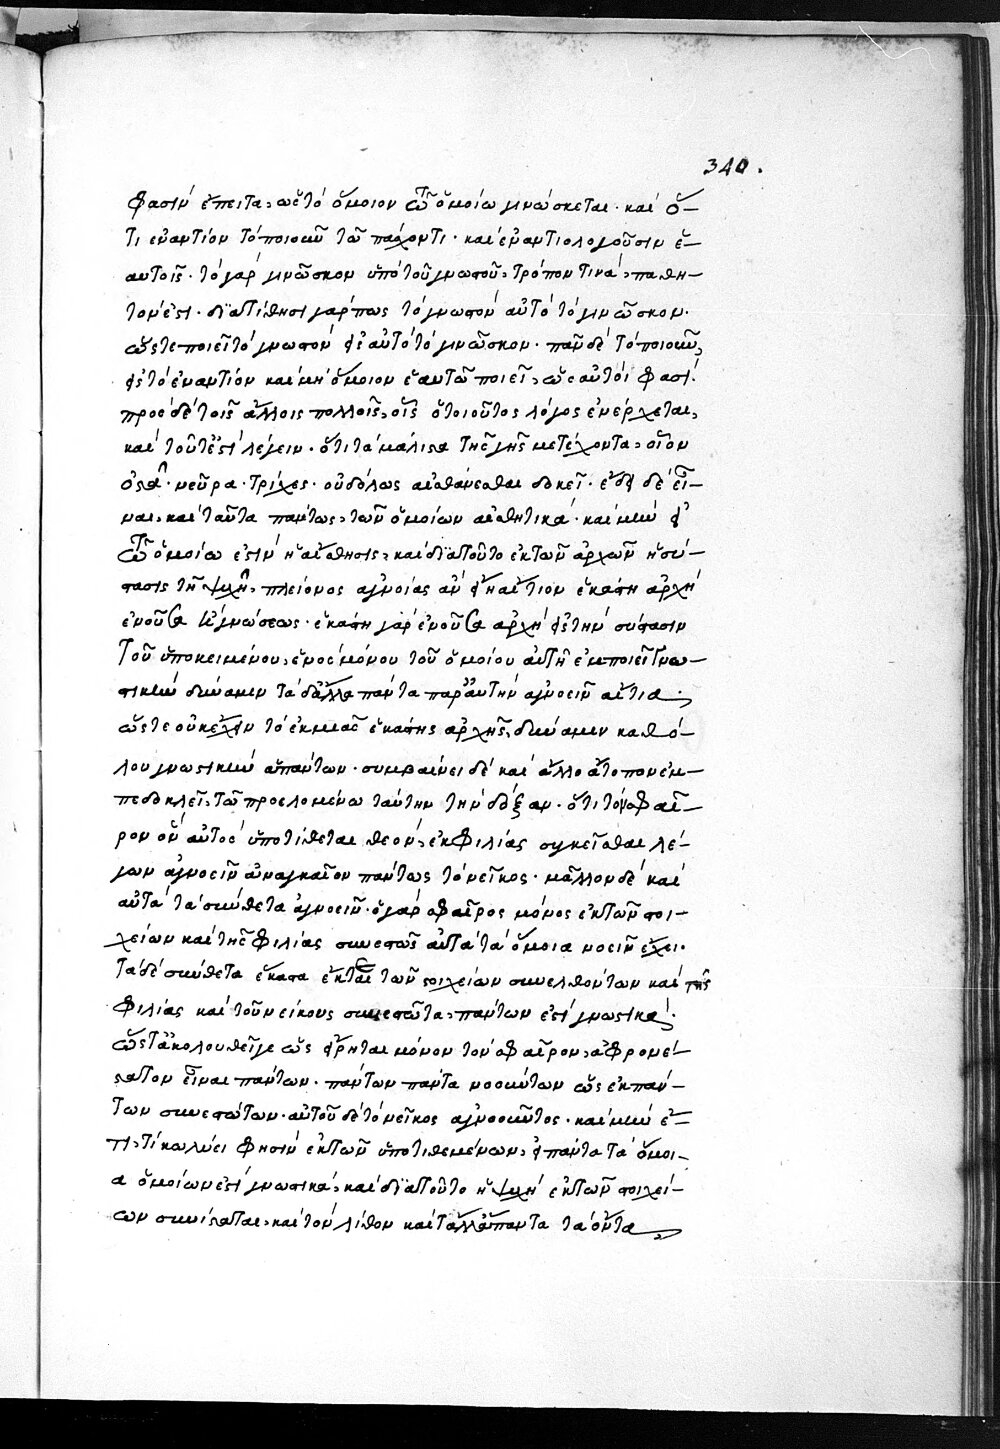 340.
φασὶν ἔπειτα, ὡς τὸ ὅμοιον τῷ ὁμοίῳ γινώσκεται· καὶ ὅ-
τι ἐναντίον τὸ ποιοῦν τῷ πάσχοντι· καὶ ἐναντιολογοῦσιν ἑ-
αυτοῖς· τὸ γὰρ γινῶσκον ὑπὸ τοῦ γνωστοῦ, τρόπον τινά, παθη-
τόν ἐστι· διατίθησι γάρ πως τὸ γνωστὸν αὐτὸ τὸ γινῶσκον·
ὥστε ποιεῖ τὸ γνωστὸν εἰς αὐτὸ τὸ γινῶσκον· πᾶν δὲ τὸ ποιοῦν,
εἰς τὸ ἐναντίον καὶ μὴ ὅμοιον ἑαυτῷ ποιεῖ, ὡς αὐτοί φασι.
πρὸς δὲ τοῖς ἄλλοις πολλοῖς, οἷς ὁ τοιοῦτος λόγος ἐνέρχεται,
καὶ τοῦτ' ἔστι λέγειν· ὅτι τὰ μάλιστα τῆς γῆς μετέχοντα, οἷον
ὀστᾶ· νεῦρα· τρίχες· οὐδόλως αἰσθάνεσθαι δοκεῖ· ἔδει δὲ εἶ-
ναι, καὶ ταῦτα πάντως, τῶν ὁμοίων αἰσθητικά· καὶ μὴν εἰ
τῷ ὁμοίῳ ἐστὶν ἡ αἴσθησις, καὶ διὰ τοῦτο ἐκ τῶν ἀρχῶν ἡ σύ-
στασις τῇ ψυχῇ, πλείονος ἀγνοίας ἂν εἴη αἴτιον ἑκάστη ἀρχὴ
ἐνοῦσα ἢ γνώσεως· ἑκάστη γὰρ ἐνοῦσα ἀρχὴ εἰς τὴν σύστασιν
τοῦ ὑποκειμένου, ἑνὸς μόνου τοῦ ὁμοίου αὐτῇ ἐμποιεῖ γνω-
στικὴν δύναμιν τὰ δ' ἄλλα πάντα παρ' αὐτὴν ἀγνοεῖν αἰτία·
ὥστε οὐκ ἔχειν τὸ ἐκ μιᾶς ἑκάστης ἀρχῆς, δύναμιν καθό-
λου γνωστικὴν ἁπάντων· συμβαίνει δὲ καὶ ἄλλο ἄτοπον ἐμ-
πεδοκλεῖ, τῷ προελομένῳ ταύτην τὴν δόξαν· ὅτι τὸν σφαῖ-
ρον ὃν αὐτὸς ὑποτίθεται θεόν, ἐκ φιλίας συγκεῖσθαι λέ-
γων ἀγνοεῖν ἀναγκαῖον πάντως τὸ νεῖκος· μᾶλλον δὲ καὶ
αὐτὰ τὰ σύνθετα ἀγνοεῖν· ὁ γὰρ σφαῖρος μόνος ἐκ τῶν στοι-
χείων καὶ τῆς φιλίας συνεστὼς αὐτὰ τὰ ὅμοια νοεῖν ἔχει·
τὰ δὲ σύνθετα ἕκαστα ἔκ τε τῶν στοιχείων συνελθόντων καὶ τῆς
φιλίας καὶ τοῦ νείκους συνεστῶτα, πάντων ἐστὶ γνωστικά·
ὥστ' ἀκολουθεῖ γε ὡς εἴρηται μόνον τὸν σφαῖρον, ἀφρονέ-
στατον εἶναι πάντων· πάντων πάντα νοούντων ὡς ἐκ πάν-
των συνεστώτων· αὐτοῦ δὲ τὸ νεῖκος ἀγνοοῦντος· καὶ μὴν ἔ-
τι, τί κωλύει φησὶν ἐκ τῶν ὑποτιθεμένων, εἰ πάντα τὰ ὅμοι-
α ὁμοίων ἐστὶ γνωστικά, καὶ διὰ τοῦτο ἡ ψυχὴ ἐκ τῶν στοιχεί-
ων συνίσταται, καὶ τὸν λίθον καὶ τἄλλα ἅπαντα τὰ ὄντα